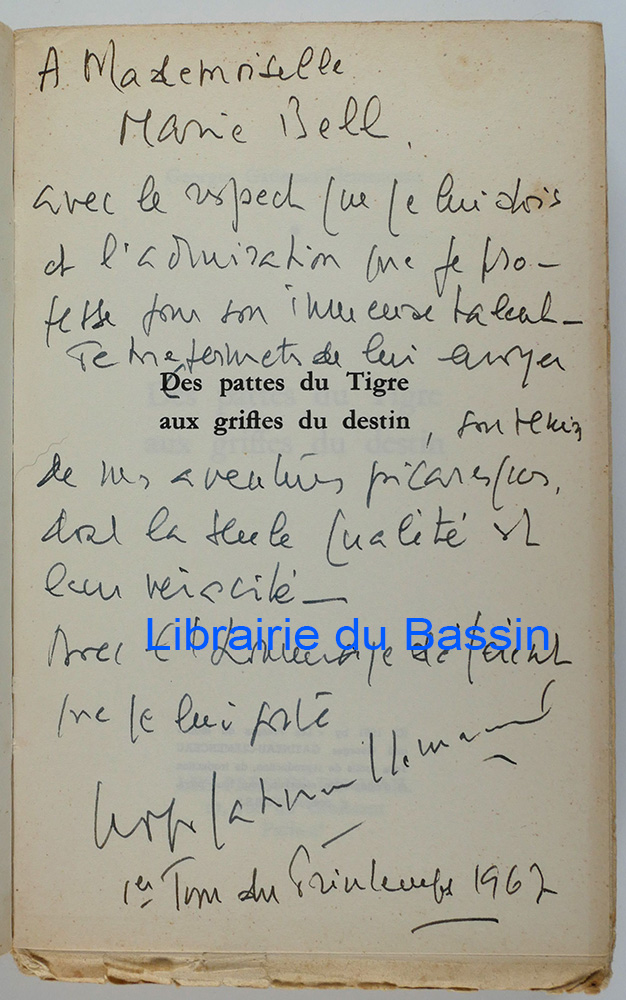 A Mademoiselle
Marie Bell.
avec le respect que je lui dois
et l'admiration que je pro-
fesse pour son immense talent -
Je me permets de lui envoyer
Des pattes du Tigre
aux griffes du destin
, souvenir
de mes aventures picaresques,
dont la seule qualité est
leur véracité -
Librairie du Bassin
Avec l'hommage déférent
que je lui porte
1er Jour du Printemps 1967